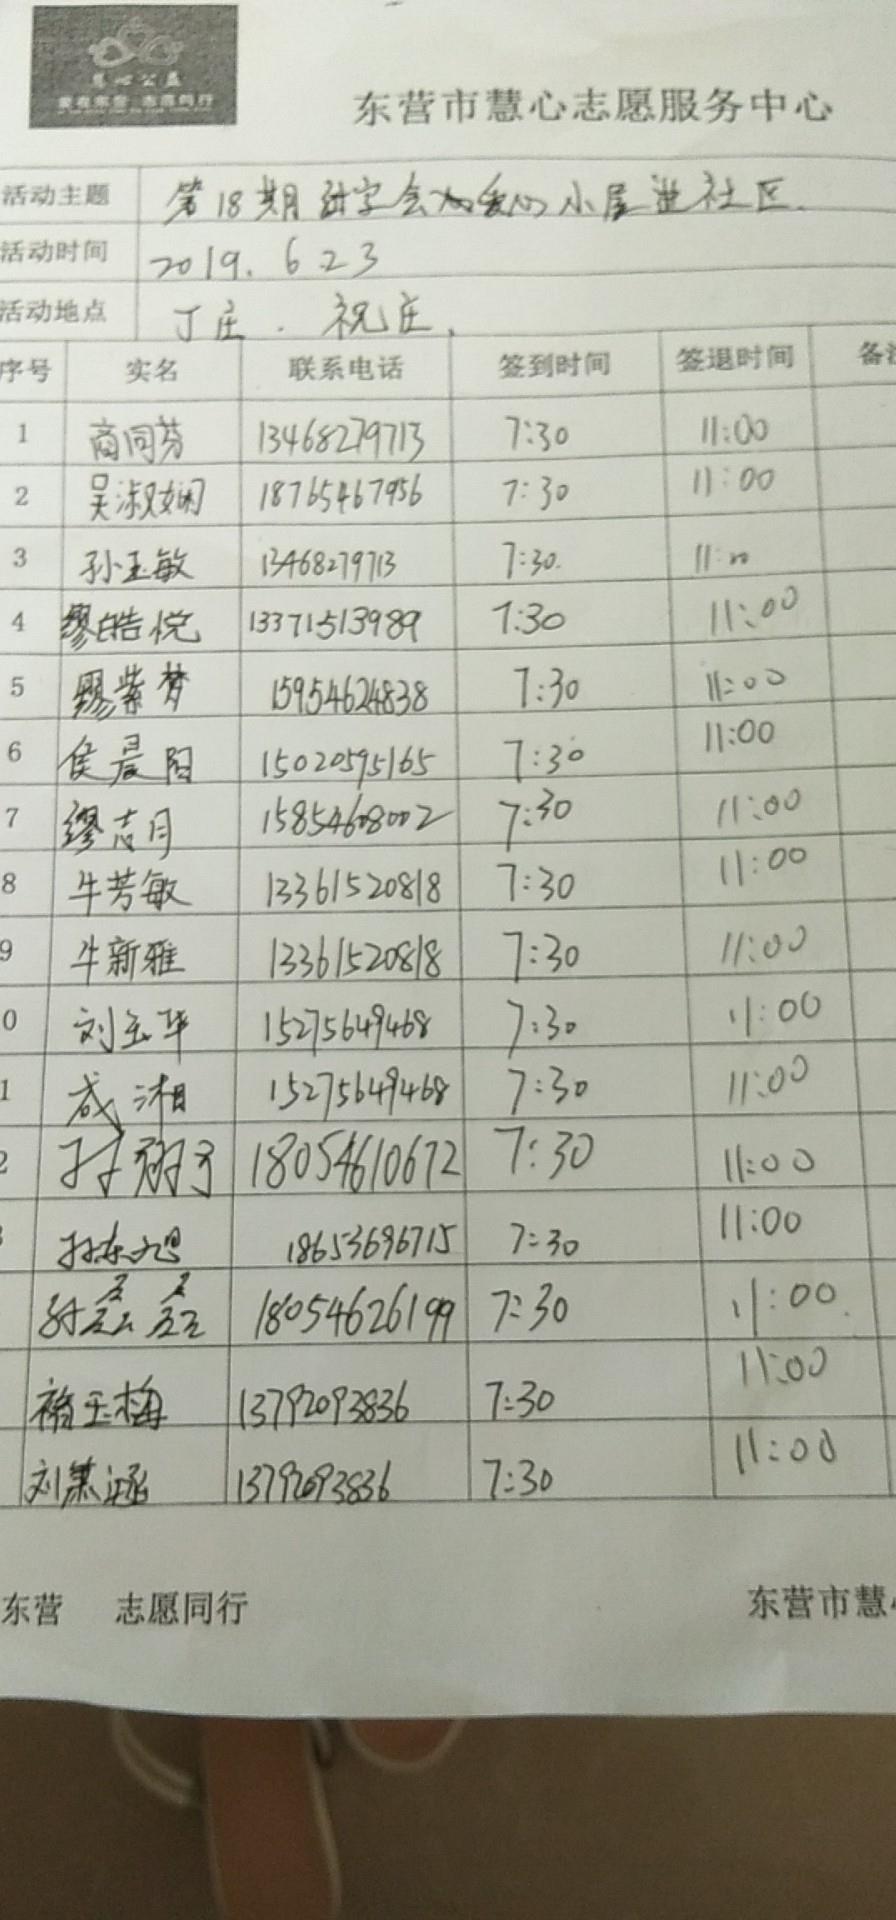 慧心公益
爱在东营 志愿同行
东营市慧心志愿服务中心
活动主题 第18期 小屋进社区.
活动时间 2019.6 23
活动地点 丁庄. 祝庄.
序号 实名 联系电话 签到时间 签退时间 备注
1 商同芬 13468279713 7:30 11:00
2 吴淑娴 18765467956 7:30 11:00
3 孙玉敏 13468279713 7:30. 11:00
4 缪皓悦 13371513989 7:30 11:00
5 缪紫梦 15954624838 7:30 11:00
6 侯晨阳 15020595165 7:30 11:00
7 缪志月 15854608002 7:30 11:00
8 牛芳敏 13361520818 7:30 11:00
9 牛新雅 13361520818 7:30 11:00
0 刘玉华 15275649468 7:30 11:00
1 成湘 15275649468 7:30 11:00
2 18054610672 7:30 11:00
孙东旭 18653696715 7:30 11:00
18054626199 7:30 11:00
褚玉梅 13792093836 7:30 11:00
刘 涵 13792093836 7:30 11:00
东营 志愿同行 东营市慧